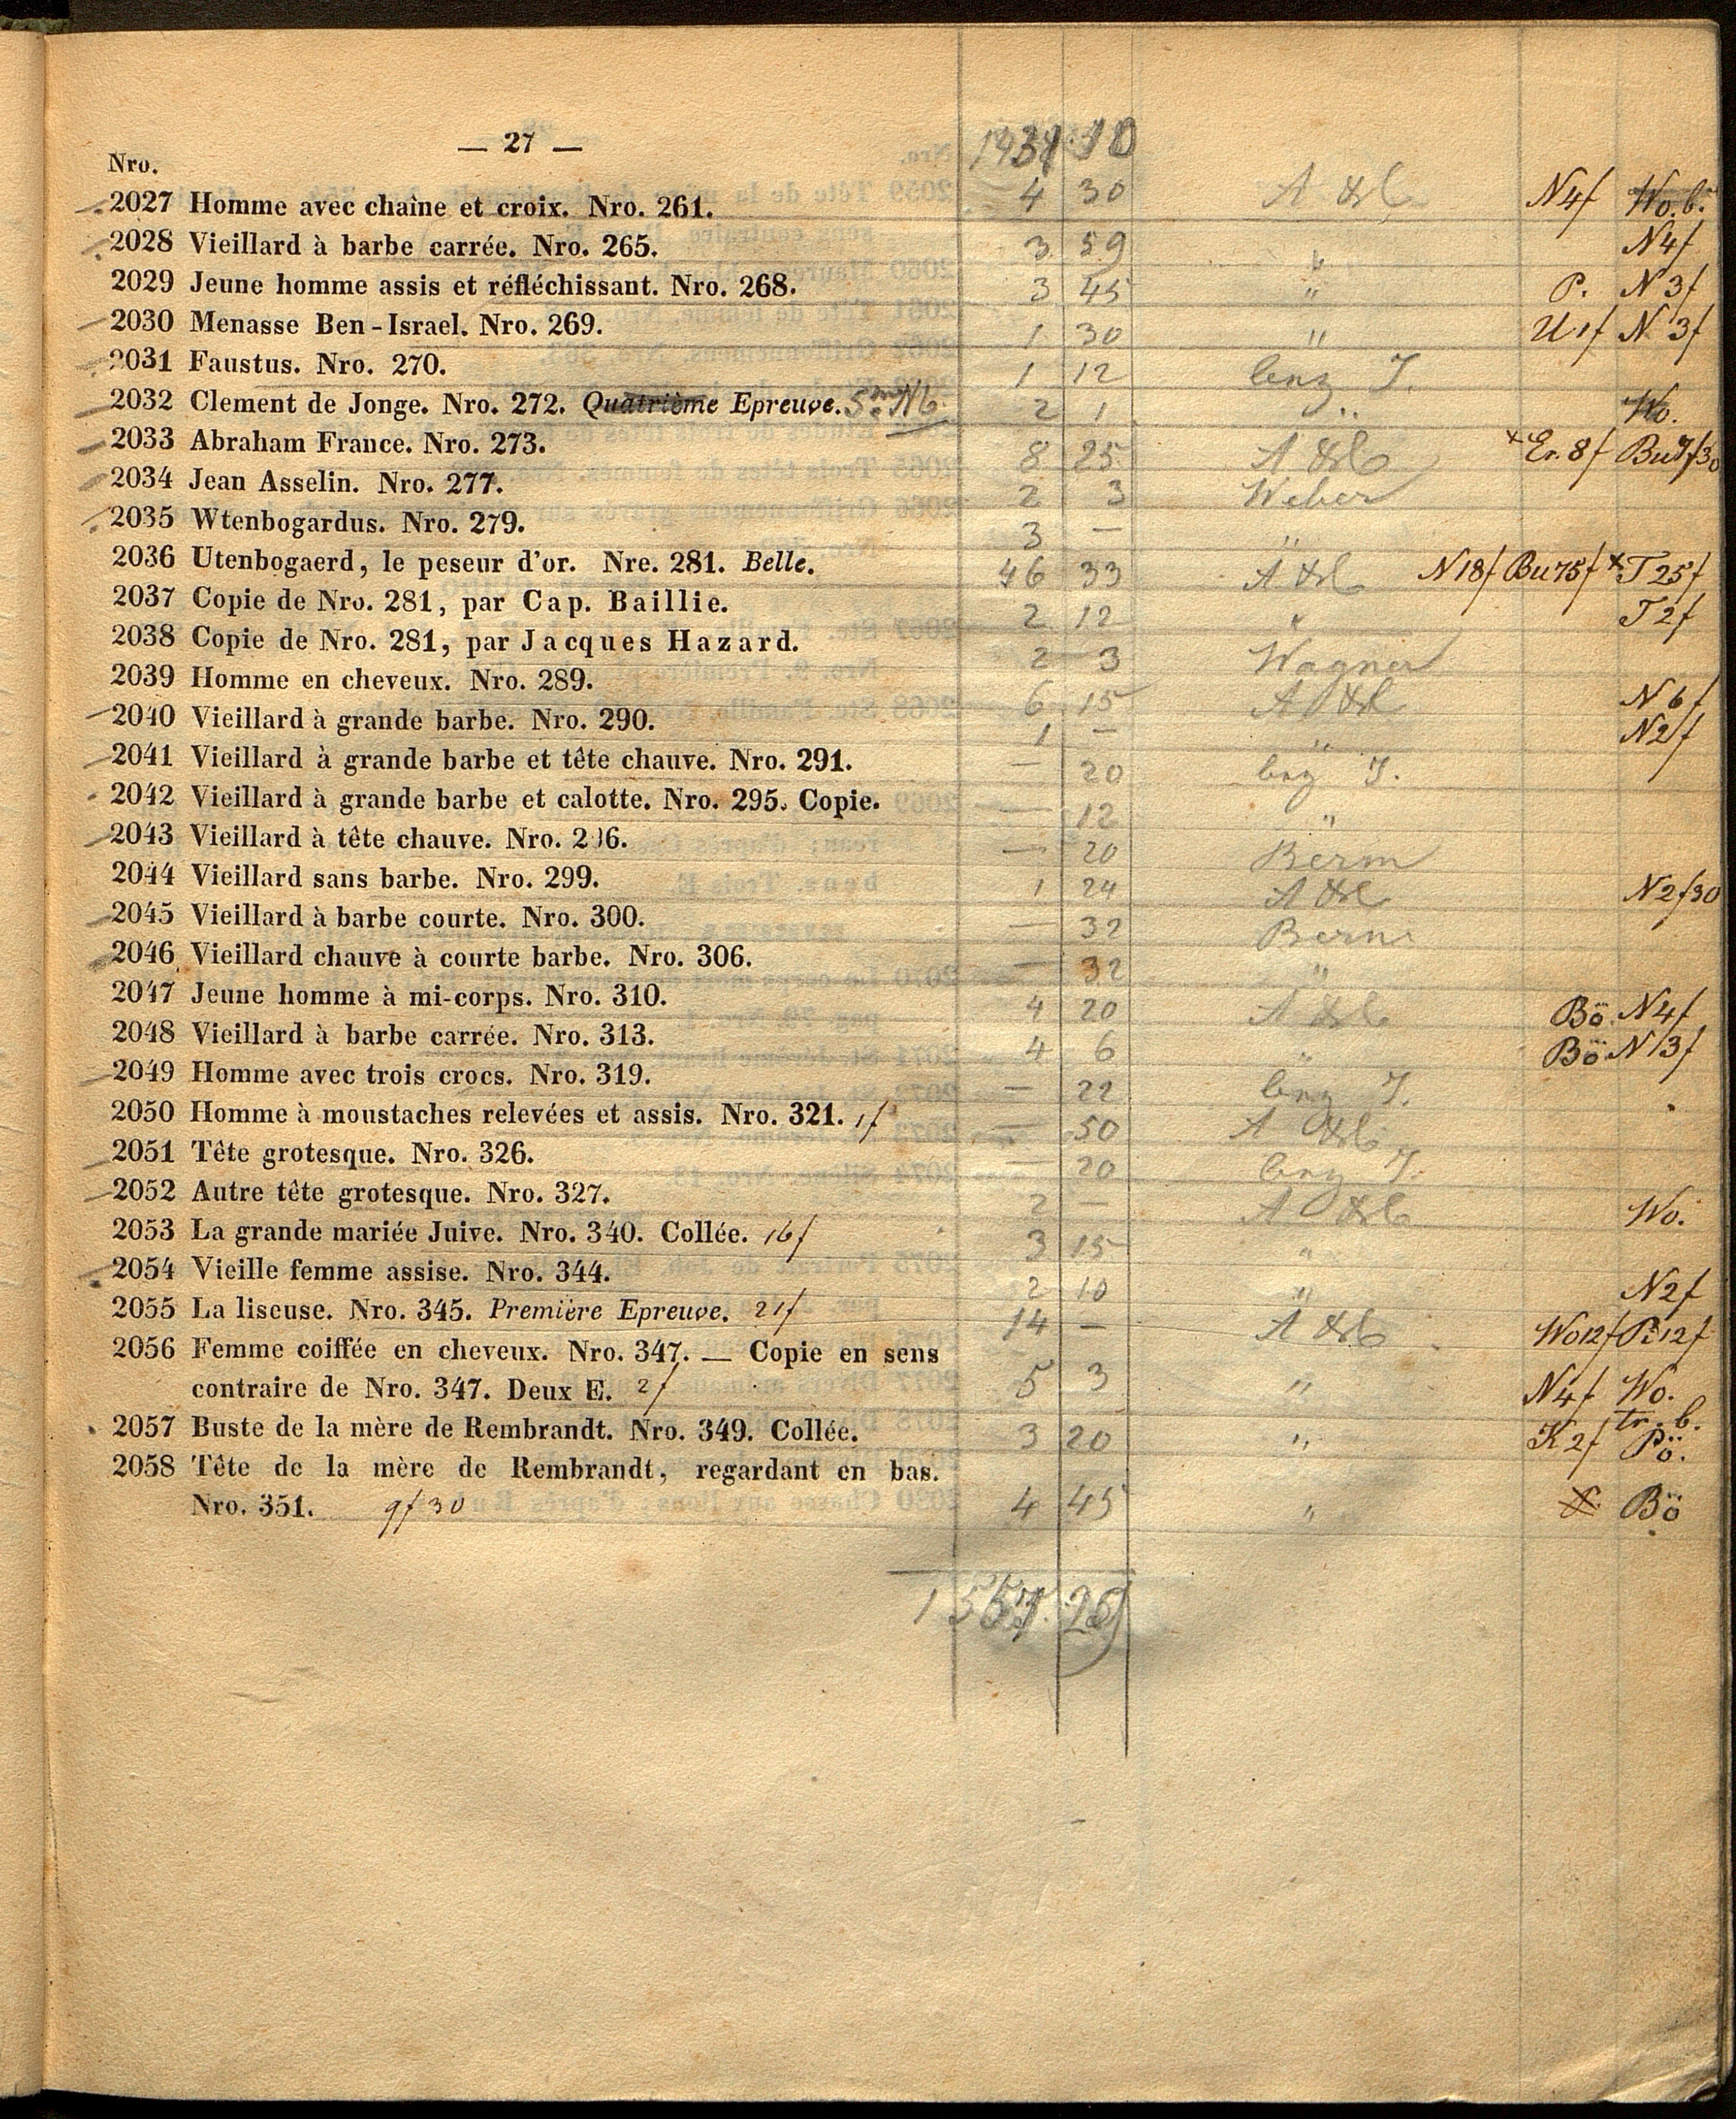 — 27 —
Nro.
2027 Homme avec chaîne et croix. Nro. 261. 4 30 N4f Wo. b.
2028 Vieillard à barbe carrée. Nro. 265. 3 59 " N4f
2029 Jeune homme assis et réfléchissant. Nro. 268. 3 45 " P. N 3f
2030 Menasse Ben-Israel. Nro. 269. 1 30 " U1f N 3f
2031 Faustus. Nro. 270. 1 12
2032 Clement de Jonge. Nro. 272. Quatrième Epreuve. 2 1 " Wo.
2033 Abraham France. Nro. 273. 8 25 Er. 8f Bu7f30
2034 Jean Asselin. Nro. 277. 2 3 Weber
2035 Wtenbogardus. Nro. 279. 3 — "
2036 Utenbogaerd, le peseur d'or. Nre. 281. Belle. 46 33 N18f Bu75f T25f
2037 Copie de Nro. 281, par Cap. Baillie. 2 12 " T2f
2038 Copie de Nro. 281, par Jacques Hazard. 2 3 Wagner
2039 Homme en cheveux. Nro. 289. 6 15 N 6f
2040 Vieillard à grande barbe. Nro. 290. 1 — " N2f
2041 Vieillard à grande barbe et tête chauve. Nro. 291. — 20
2042 Vieillard à grande barbe et calotte. Nro. 295. Copie. — 12 "
2043 Vieillard à tête chauve. Nro. 296. — 20 Berm
2044 Vieillard sans barbe. Nro. 299. 1 24 N2f30
2045 Vieillard à barbe courte. Nro. 300. — 32 Berm
2046 Vieillard chauve à courte barbe. Nro. 306. — 32 "
2047 Jeune homme à mi-corps. Nro. 310. 4 20 Bö. N4f
2048 Vieillard à barbe carrée. Nro. 313. 4 6 " Bö N 3f
2049 Homme avec trois crocs. Nro. 319. — 22
2050 Homme à moustaches relevées et assis. Nro. 321. 1f — 50
2051 Tête grotesque. Nro. 326. — 20
2052 Autre tête grotesque. Nro. 327. 2 — Wo.
2053 La grande mariée Juive. Nro. 340. Collée. 16f 3 15 "
2054 Vieille femme assise. Nro. 344. 2 10 " N2f
2055 La liseuse. Nro. 345. Première Epreuve. 21f 14 — Wo12f P.12f
2056 Femme coiffée en cheveux. Nro. 347. — Copie en sens
contraire de Nro. 347. Deux E. 2f 5 3 " N4f Wo.
2057 Buste de la mère de Rembrandt. Nro. 349. Collée. 3 20 " K2f tr. b. Pö.
2058 Tête de la mère de Rembrandt, regardant en bas.
Nro. 351. 9f30 4 45 " Bö